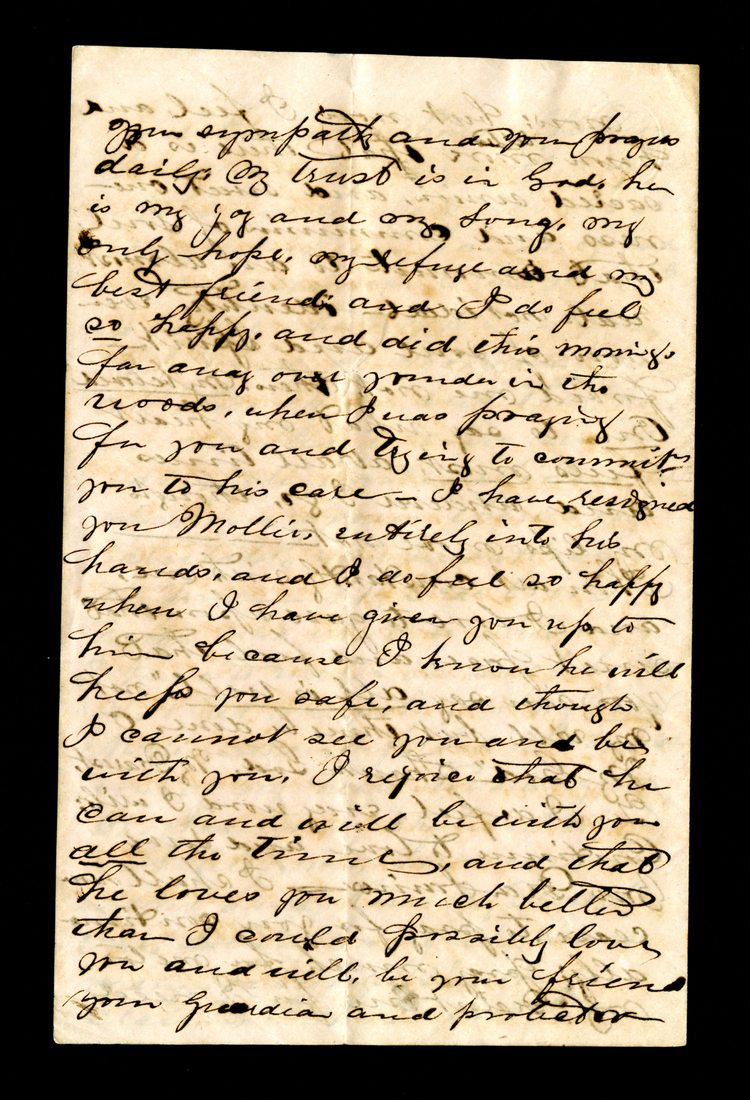 your sympath and your prayers
daily. My trust is in God, he
is my joy and my song, my
only hope, my refuge and my
best friend and I do feel
so happy, and did this morning,
far away over yonder in the
woods, when I was praying
for you and trying to commit
you to his care — I have resigned
you Mollie, entirely into his
hands, and I do feel so happy
when I have given you up to
him because I know he will
keep you safe, and though
I cannot see you and be
with you, I rejoice that he
can and will be with you
all the time, and that
he loves you much better
than I could possibly love
you and will be your friend
your Guardian and protector